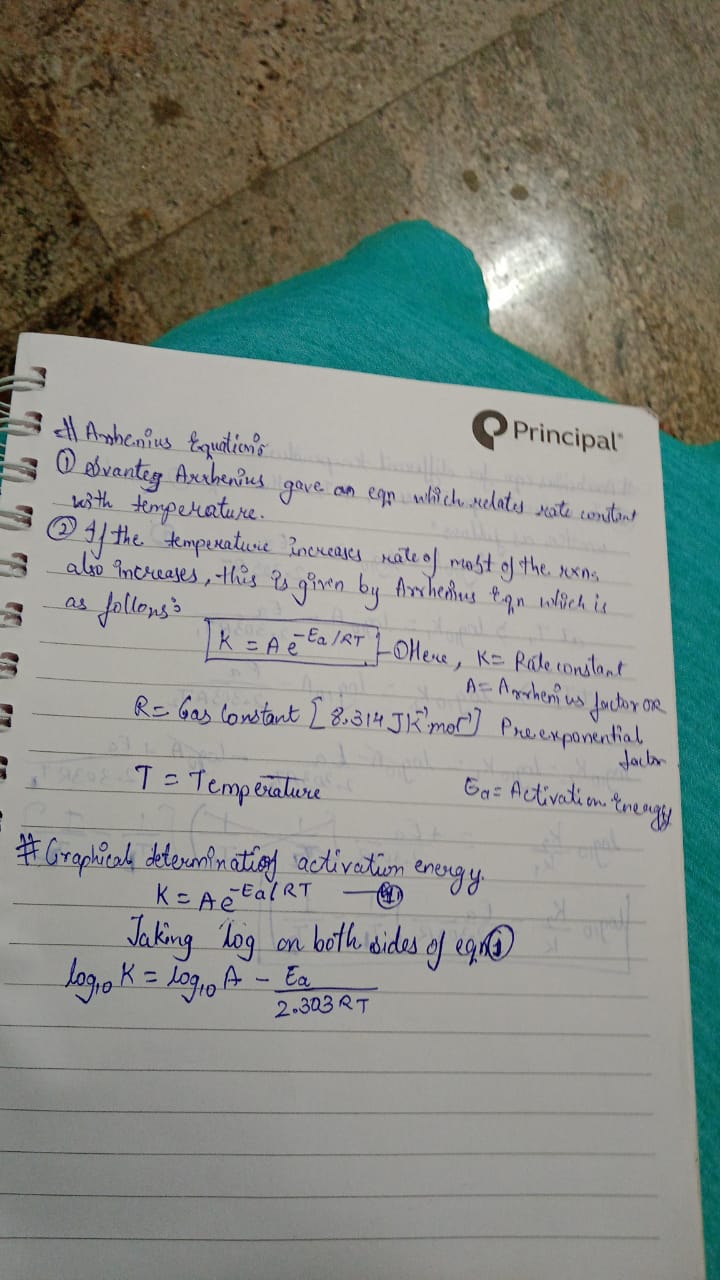 Principal
# Arrhenius Equation:
① Svanteg Arrhenius gave an eqn which relates rate constant
with temperature.
② If the temperature increases rate of most of the rxns
also increases, this is given by Arrhenius Eqn which is
as follows:
K = A e^-Ea/RT —① Here, K = Rate constant
A = Arrhenius factor OR
R = Gas Constant [8.314 JK⁻¹mol⁻¹] Preexponential
factor
T = Temperature Ea = Activation Energy
# Graphical determination of activation energy.
K = A e^-Ea/RT —①
Taking log on both sides of eqn ①
log₁₀ K = log₁₀ A - Ea
2.303 RT